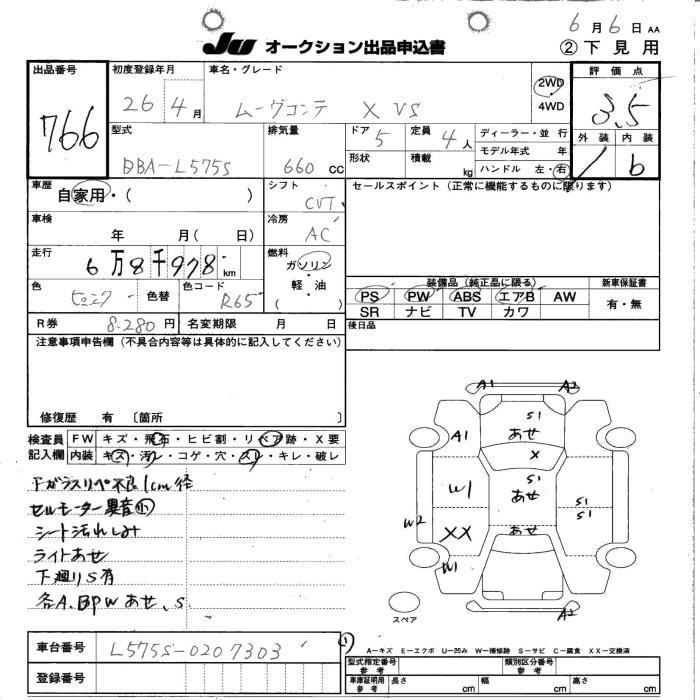 6月6日 AA
JU オークション出品申込書
② 下見用
出品番号 766
初度登録年月 26 4月
車名・グレード ムーヴコンテ X VS
2WD
4WD
評価点 3.5
外装 内装 b
型式 DBA-L575S
排気量 660 cc
ドア 5
定員 4人
形状
積載 kg
ディーラー・並行
モデル年式 年
ハンドル 左・右
車歴 自家用・( )
シフト CVT
セールスポイント (正常に機能するものに限ります)
車検 年 月( 日)
冷房 AC
走行 6万8千978km
燃料 ガソリン・軽・油 ( )
色
色替
色コード R65
装備品 (純正品に限る)
新車保証書
PS PW ABS エアB AW
有・無
SR ナビ TV カワ
R券 8.280円
名変期限 月 日
後日品
注意事項申告欄 (不具合内容等は具体的に記入してください)
修復歴 有 〔箇所 〕
検査員記入欄
FW キズ・飛石・ヒビ割・リペア跡・X要
内装 キズ・汚レ・コゲ・穴・スレ・キレ・破レ
Fガラスリペ不良1cm径
セルモーター異音小
シート汚れしみ
ライトあせ
下廻りS有
各A、BPWあせ、S
A1 A2
S1
A1 あせ
X
S1
W1 あせ S1
S1
W2 XX あせ
W1
スペア
A2
車台番号 L575S-0207303
A-キズ E-エクボ U-凹み W-補修跡 S-サビ C-腐食 XX-交換済
登録番号
型式指定番号 参考
類別区分番号 参考
車庫証明用 参考 長さ cm 幅 cm 高さ cm